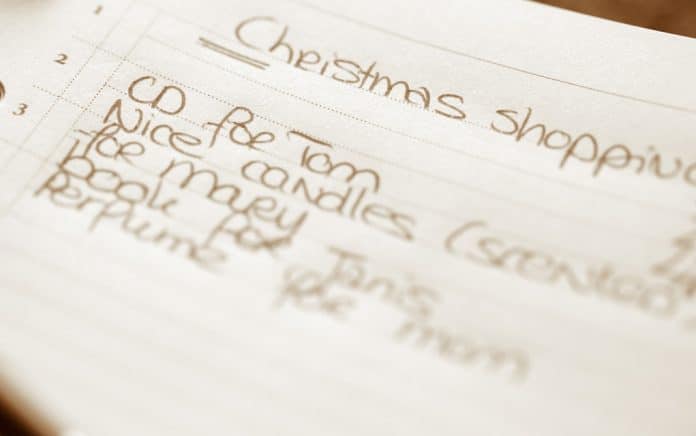 1
Christmas shopping
2
3
CD for Tom
Nice candles (scented)
for Mary
book for Janis
Perfume for mom